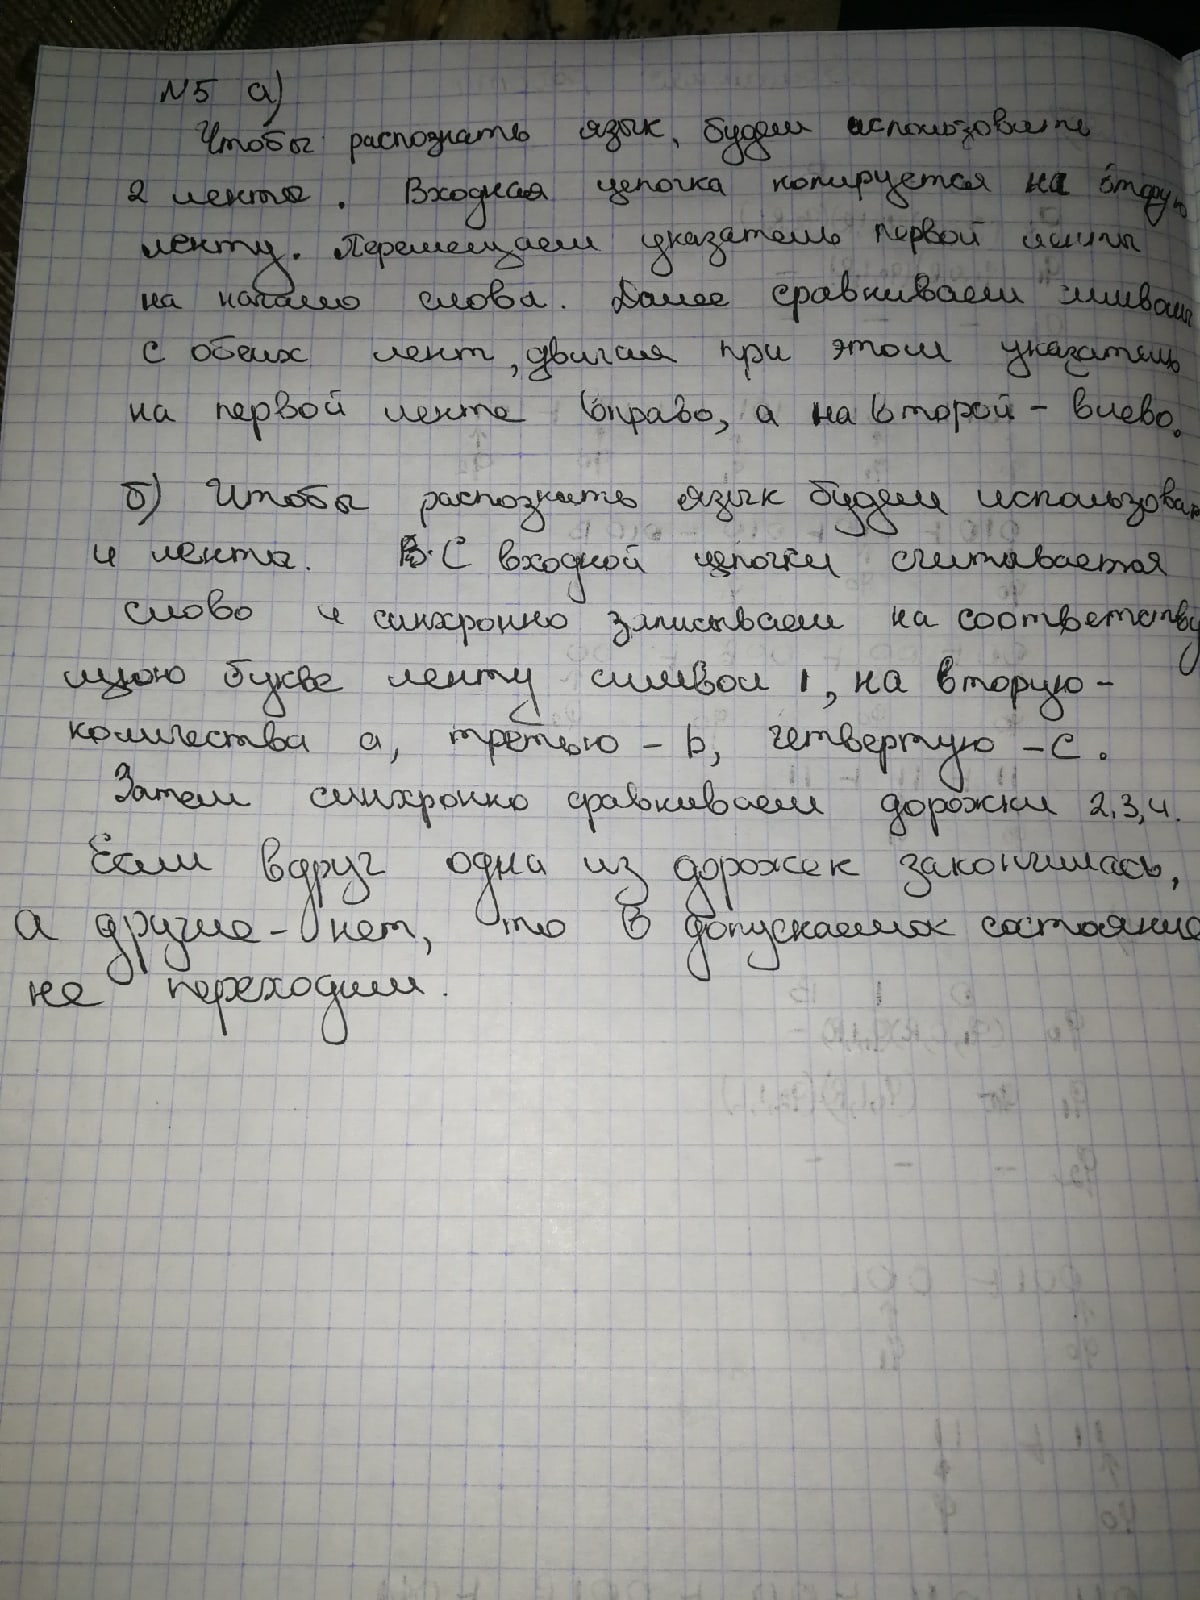 N5 а)
Чтобы распознать язык, будем использовать
2 ленты. Входная цепочка копируется на вторую
ленту. Перемещаем указатель первой ленты
на начало слова. Далее сравниваем символы
с обеих лент, двигая при этом указатель
на первой ленте вправо, а на второй - влево.
б) Чтобы распознать язык будем использовать
4 ленты. С входной цепочки считывается
слово и синхронно записываем на соответству
ющую букве ленту символ 1, на вторую -
количества a, третью - b, четвертую - c.
Затем синхронно сравниваем дорожки 2,3,4.
Если вдруг одна из дорожек закончилась,
а другие - нет, то в допускаемое состояние
не переходим.